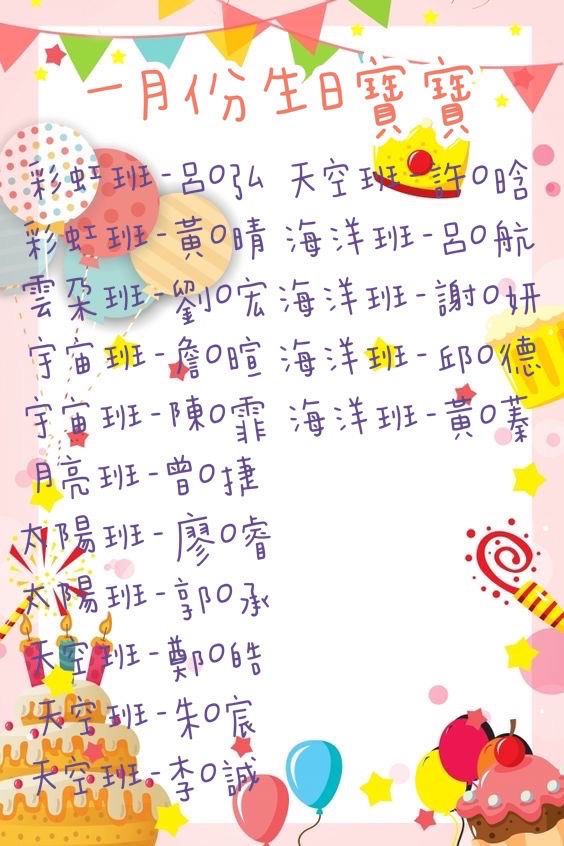 一月份生日寶寶
彩虹班-呂O弘
彩虹班-黃O晴
雲朵班-劉O宏
宇宙班-詹O暄
宇宙班-陳O霏
月亮班-曾O捷
太陽班-廖O睿
太陽班-郭O承
天空班-鄭O皓
天空班-朱O宸
天空班-李O誠
天空班-許O晗
海洋班-呂O航
海洋班-謝O妍
海洋班-邱O德
海洋班-黃O蓁